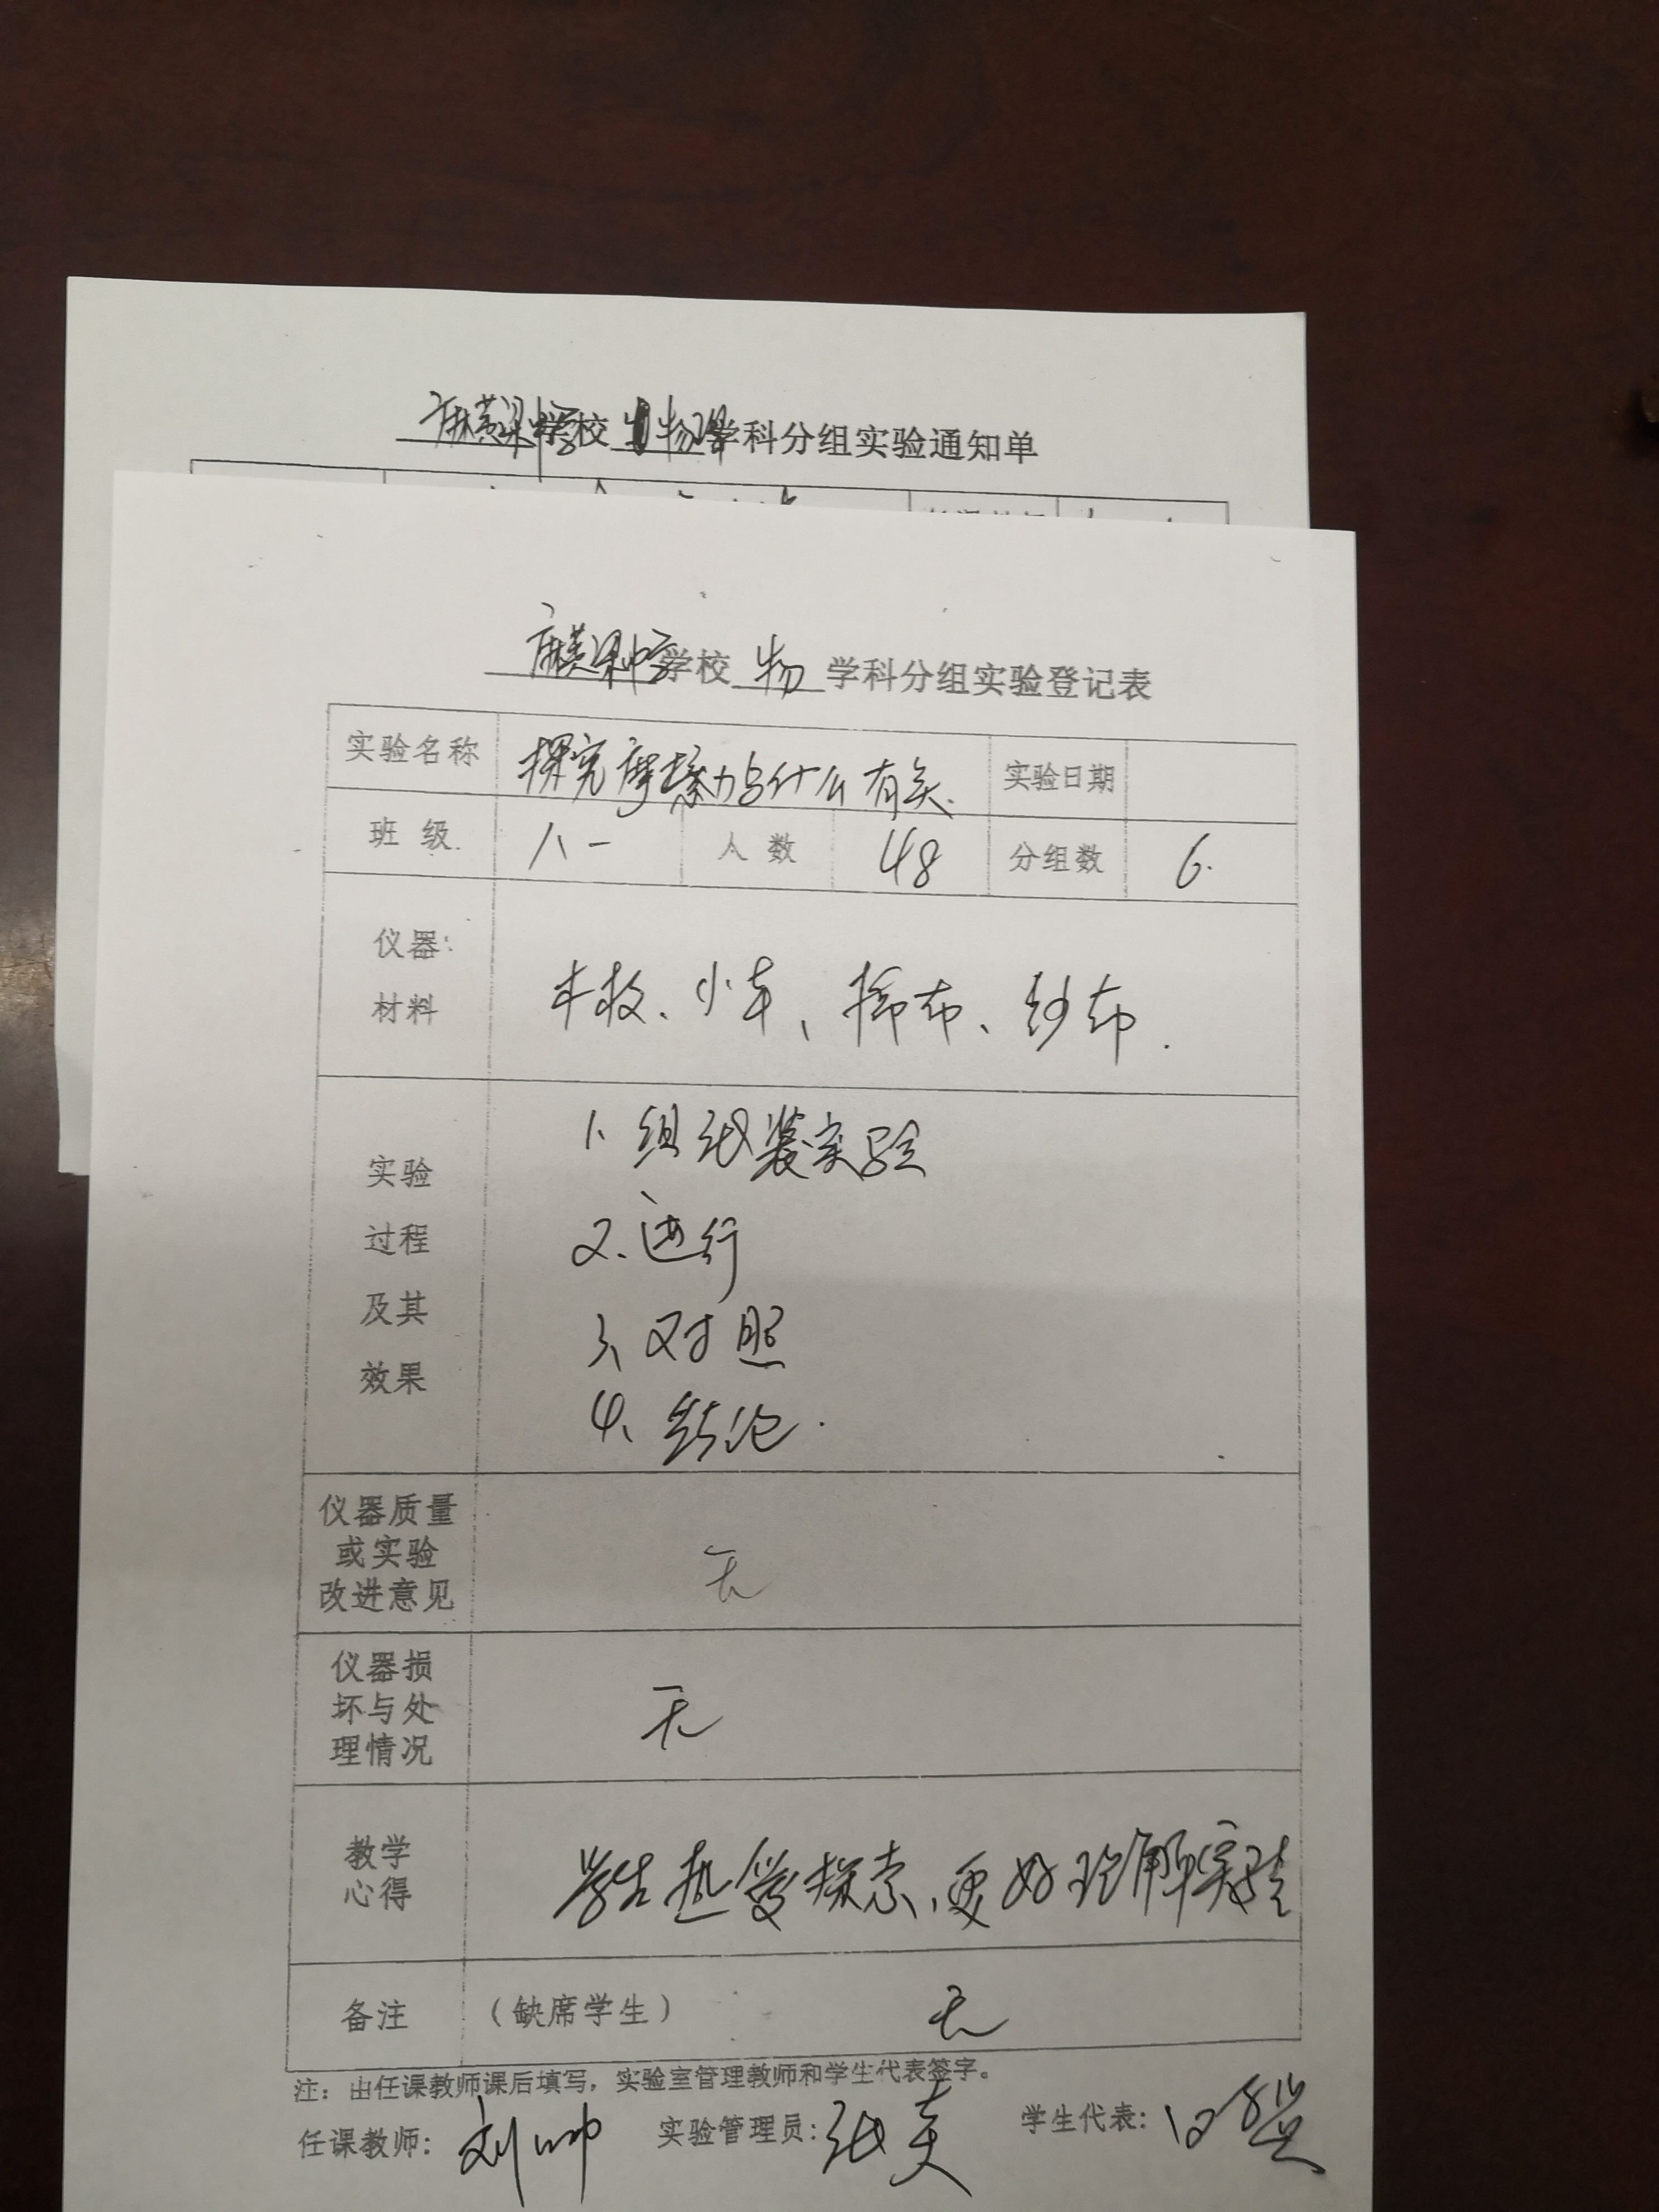 麻黄梁中学学校 物理 学科分组实验通知单
麻黄梁中学学校 物 学科分组实验登记表
实验名称 探究摩擦力与什么有关. 实验日期
班 级 八一 人 数 48 分组数 6.
仪器
材料
木板、小车、棉布、纱布.
实验
过程
及其
效果
1、组 装实验
2、进行
3、对照
4、结论.
仪器质量
或实验
改进意见
无
仪器损
坏与处
理情况
无
教学
心得
学生热爱探索、更好理解实验
备注 (缺席学生) 无
注：由任课教师课后填写，实验室管理教师和学生代表签字。
任课教师: 刘帅 实验管理员: 张 学生代表: